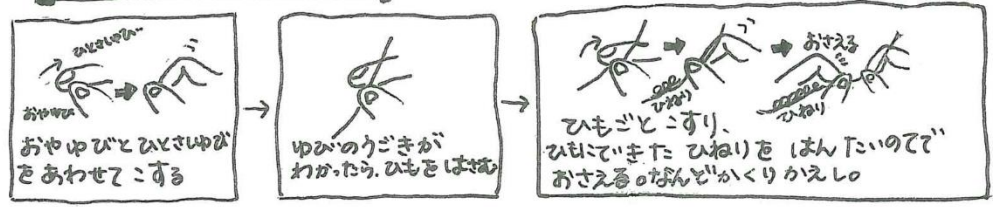 ひとさしゆび
おやゆび
おやゆびとひとさしゆび
をあわせてこする
ゆびのうごきが
わかったら、ひもをはさむ
ひねり
おさえる
ひねり
ひもごとこすり、
ひもにできたひねりをはんたいのてで
おさえる。なんどかくりかえし。